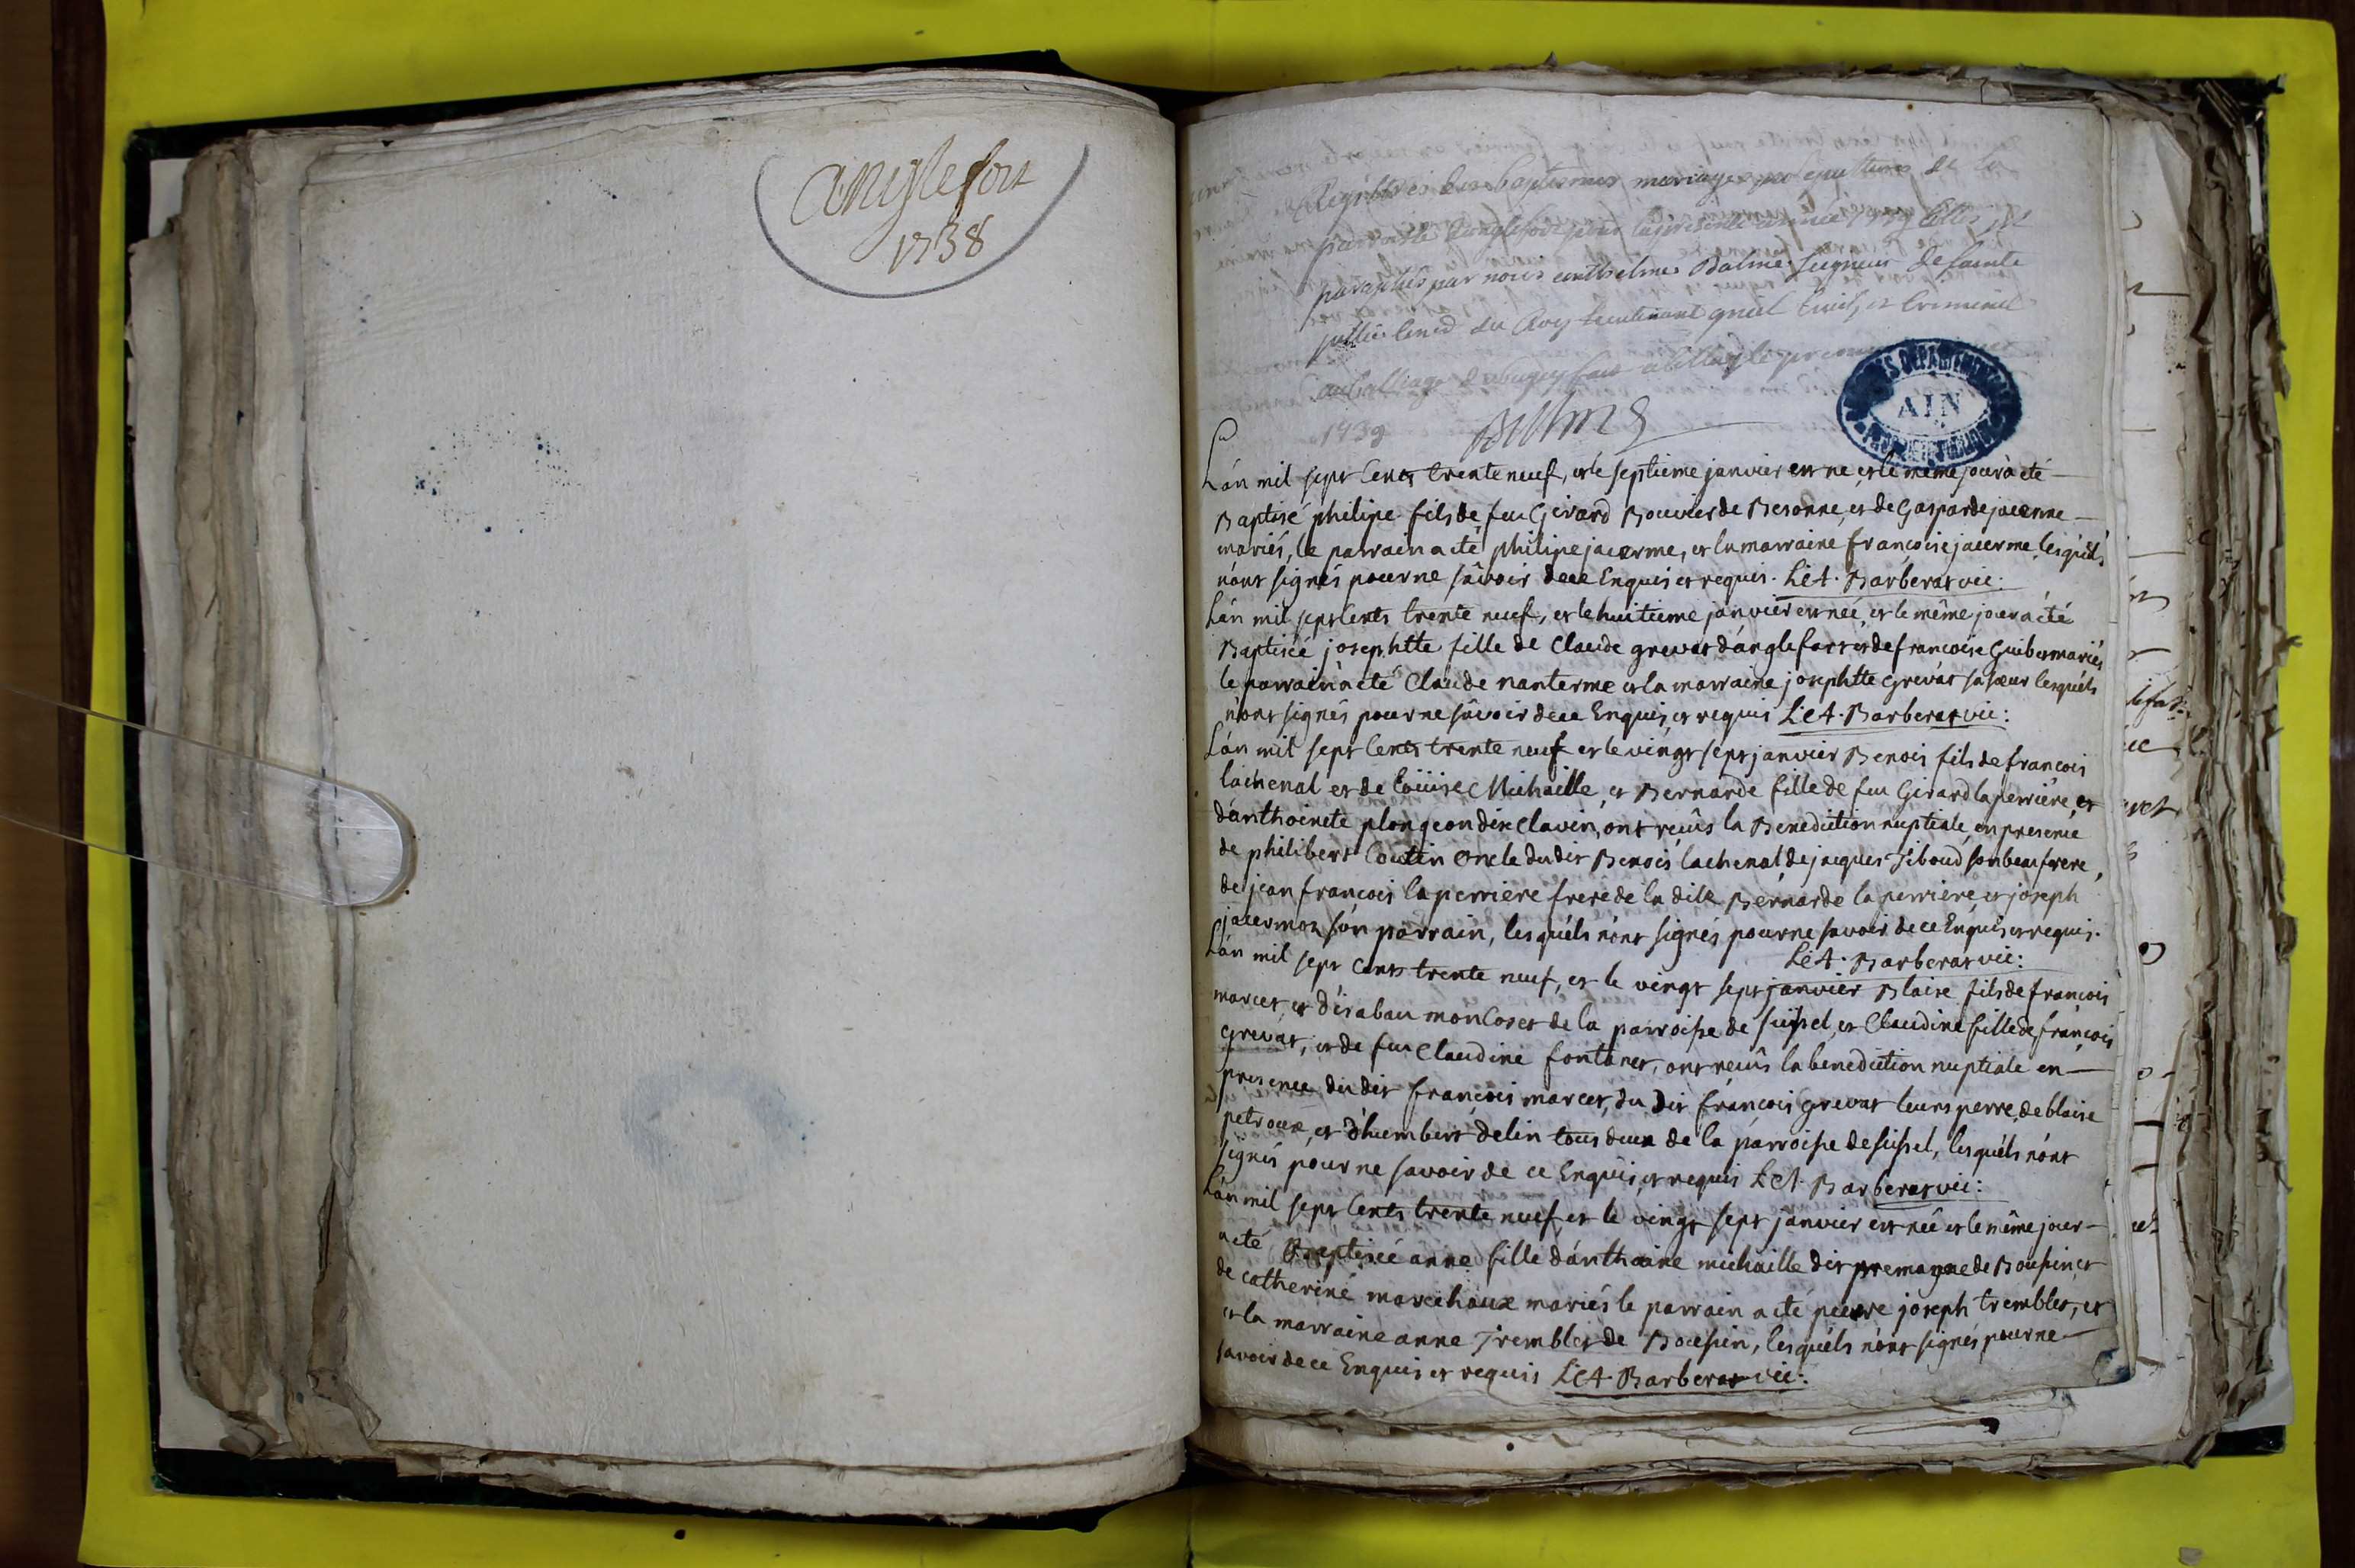 Anglefort
1738
Registres des baptemes mariages et sepultures de la
parroisse danglefort pour la presente année 1739 cottés et
paraphés par nous anthelme Balme seigneur de sainte
julie Cons.er du Roy Lieutenant gnãl Civil, et Criminel
au balliage de bugey fait a belley le premier janvier
1739 Balme
ARCHIVES DÉPARTEMENTALES
AIN
Lán mil sept Cents trente neuf, et le septieme janvier est né, et le méme jour à eté
Baptisé philipe fils de feu Girard Bouvier de Besonne, et de Gasparde jacerme
mariés, le parrain a eté philipe jacerme, et la marraine francoise jacerme lesquéls
nónt signés pour ne sávoir de ce Enquis et requis. L: et A. Barberat vic:
Lán mil sept Cents trente neuf, et le huitieme janvier est neé, et le méme jour a été
Baptiseé josephtte fille de Claude grevat dánglefort et de francoise Guibert mariés
le parrain a eté Claude nanterme et la marraine josephtte grevát sa sœur lesquéls
nónt signés pour ne sávoir de ce Enquis, et requis L: et A. Barberat vic:
Lán mil sept Cents trente neuf et le vingt sept janvier Benois fils de francois
lachenal et de Loüise Michaille, et Bernarde fille de feu Girard laperriere, et
dánthoinete plongeon de x Clavin, ont reçûs la Benediction nuptiale, en presence
de philibert Coutin oncle du dit Benois lachenal, de jacques Tiboud son beau frere,
de jean francois laperriere frere de la dite Bernarde la perriere, et joseph
jacermoz són parrain, lesquéls nónt signés pour ne savoir de ce Enquis et requis.
L: et A. Barberat vic:
Lán mil sept Cents trente neuf, et le vingt sept janvier Blaise fils de francois
marcet, et Disabau monCoset de la parroisse de seissel, et Claudine fille de francois
grevát, et de feu Claudine fontanet, ont reçûs la benediction nuptiale en
presence du dit francois marcet, du dit francois grevat leurs perre, de blaise
petroux, et dhumbert delin tous deux de la parroisse de seissel, lesquéls nónt
signés pour ne savoir de ce Enquis, et requis L: et A. Barberat vic:
Lán mil sept Cents trente neuf, et le vingt sept janvier est neé et le méme jour
a eté Baptiseé anne fille dánthoine michaille dit premagne de Boursin, et
de catherine marechaux mariés le parrain a eté pierre joseph tremblet, et
et la marraine anne Tremblet de Boursin, lesquéls nónt signés pour ne
savoir de ce Enquis et requis L: et A. Barberat vic: